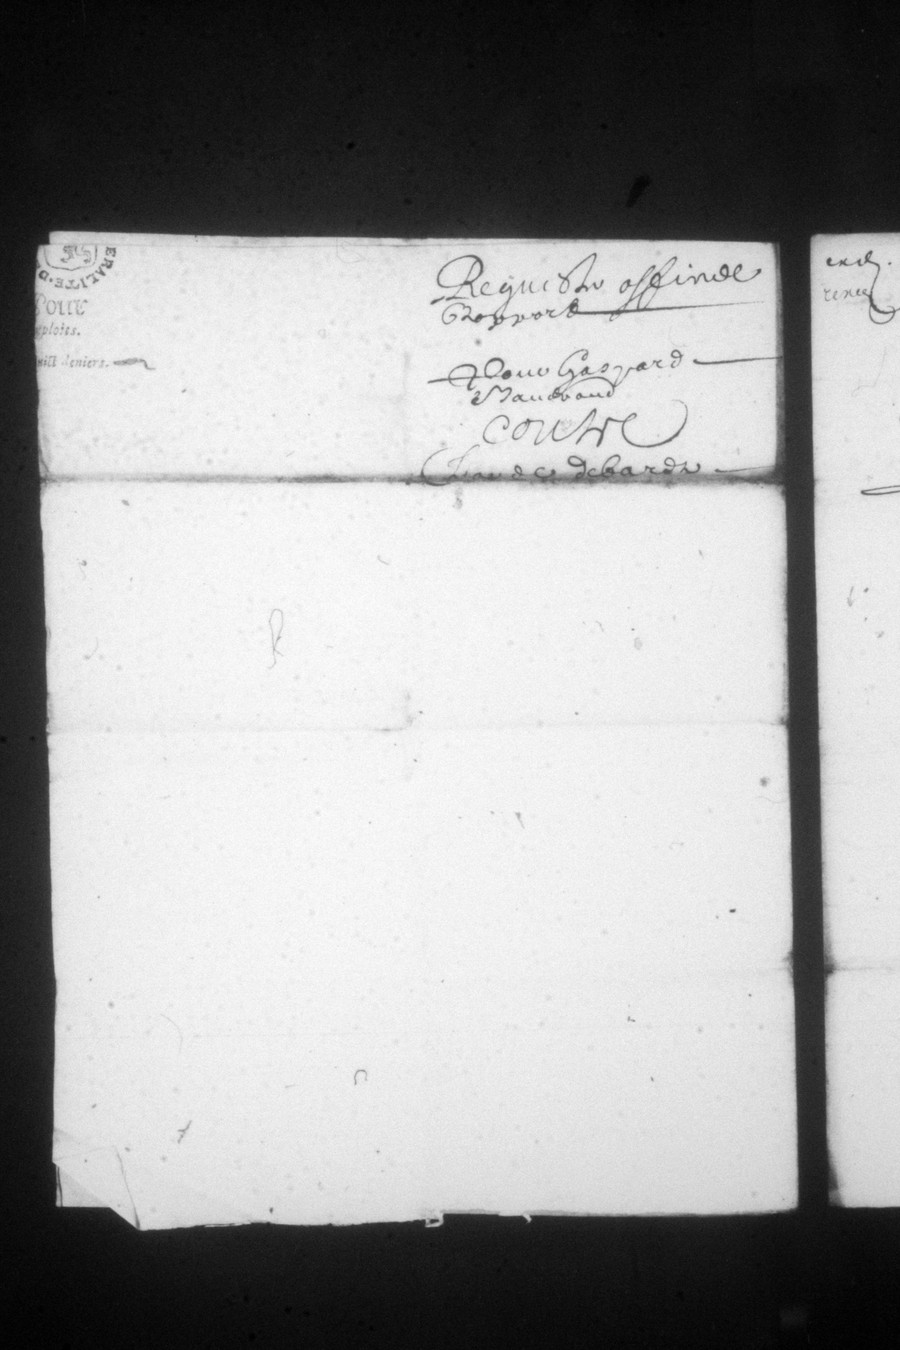 ERALITE·D
Pour
xploits.
huit deniers.
Requeste affinde
Rapport
Pour Gaspard
Maueraud
contre
Claude debarde